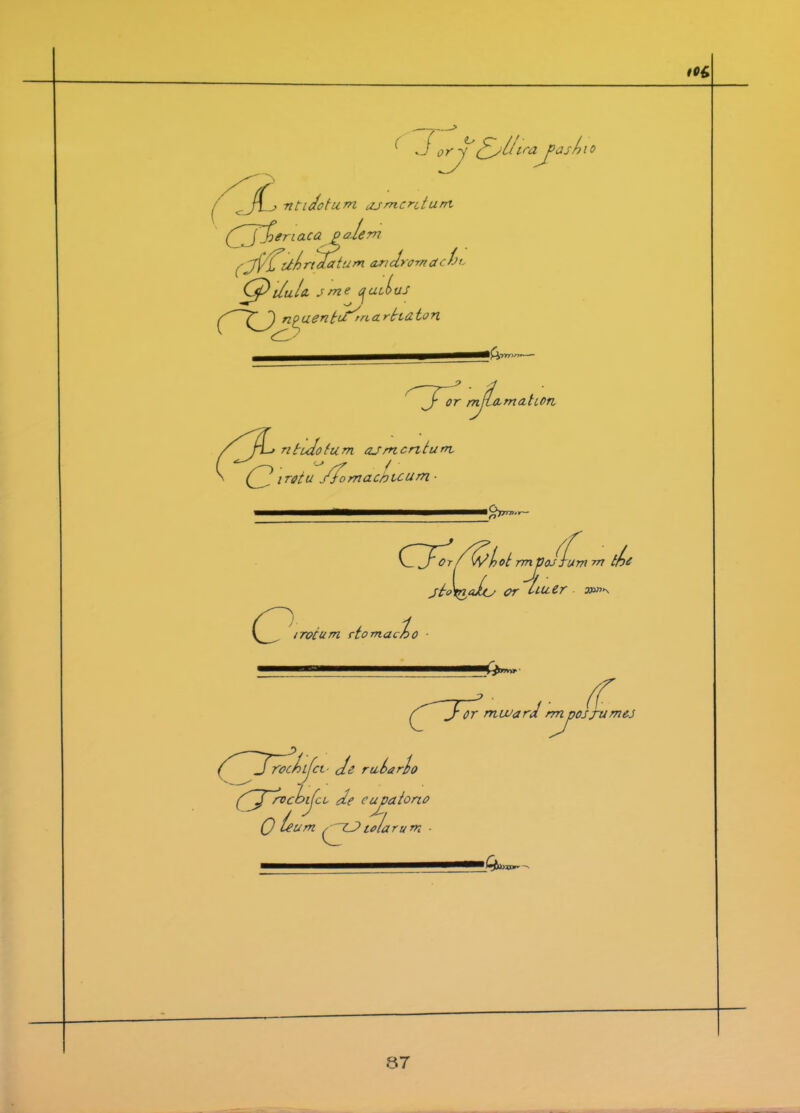 106
For y Illira pashio
Antidotum asmcritum
Theriaca galem
Mithridatum andromachi
Pilula sine quibus
Unguentū marbiaton
For inflamation
Antidotum asmcritum
Cirotu stomachicum
For Whot impostum in the
stomake or liuer
Cirotum stomacho
For inward impostumes
Trochisci de rubarbo
Trochisci de eupatorio
Oleum Violarum
87